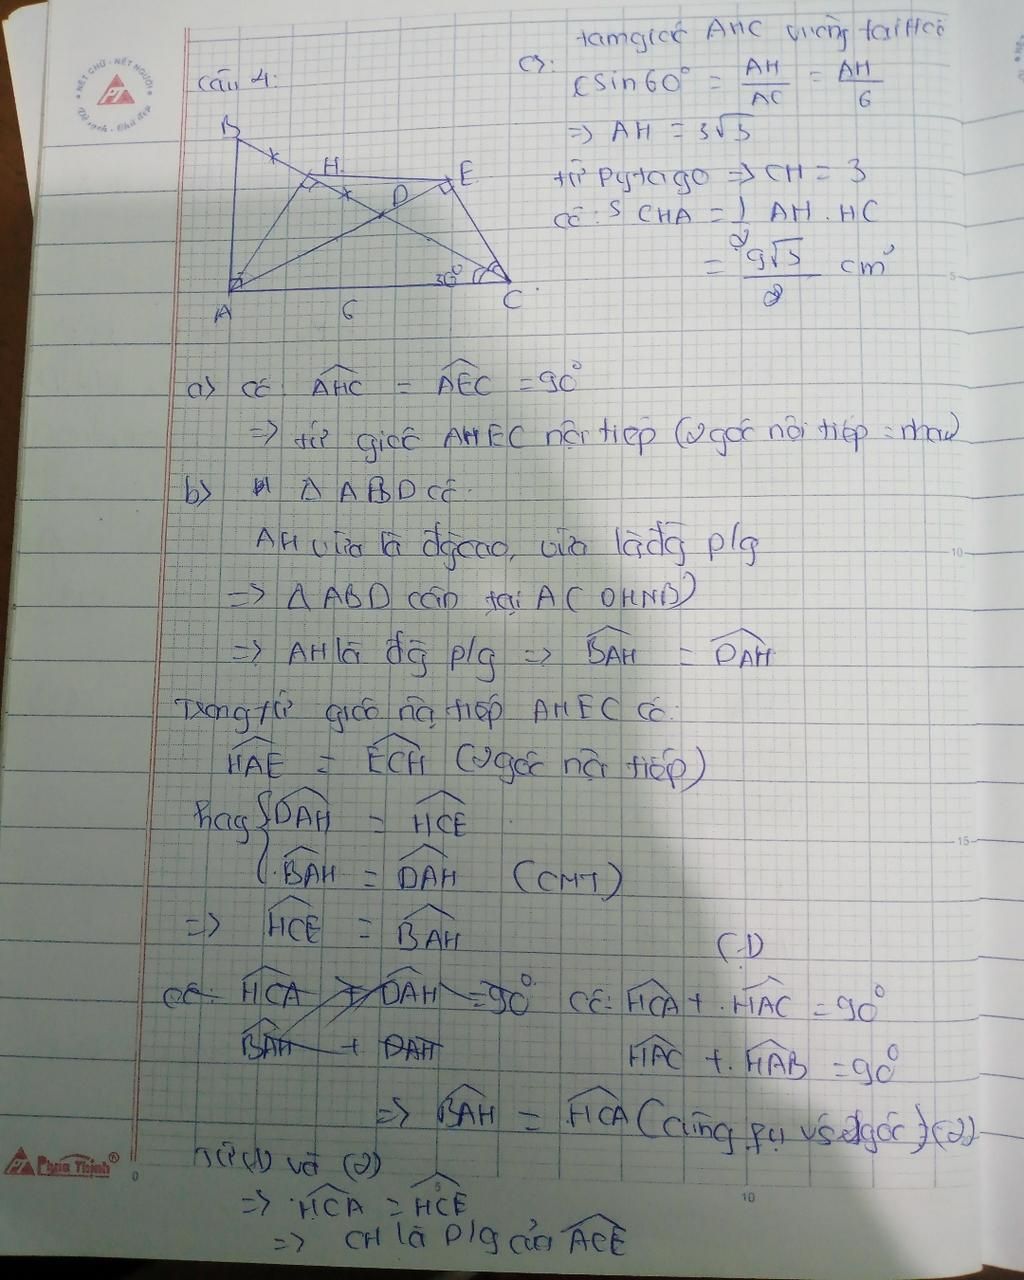 NÉT CHỮ - NẾT NGƯỜI
PT
Vở sạch - Chữ đẹp
Câu 4:
B
H
E
D
30°
A
6
C
c):
tam giác AHC vuông tại H có
sin60° = AH/AC = AH/6
=> AH = 3√3
từ Pytago => CH = 3
Có: S CHA = 1/2 AH . HC
= 9√3/2 cm²
a) Có AHC = AEC = 90°
=> tứ giác AHEC nội tiếp (2 góc nội tiếp = nhau)
b) Δ ABD có:
AH vừa là đg cao, vừa là đg p/g
=> Δ ABD cân tại A ( DHNB)
=> AH là đg p/g => BAH = DAH
Trong tứ giác nội tiếp AHEC có:
HAE = ECH (2 góc nội tiếp)
hay { DAH = HCE
BAH = DAH (CMT)
=> HCE = BAH (1)
Có: HCA + DAH = 90°
BAH + DAH
Có: HCA + HAC = 90°
HAC + HAB = 90°
=> BAH = HCA (cùng phụ vs góc) (2)
Từ (1) và (2)
=> HCA = HCE
=> CH là p/g của ACE
PT Phúc Thịnh®
5
10
15
0
5
10